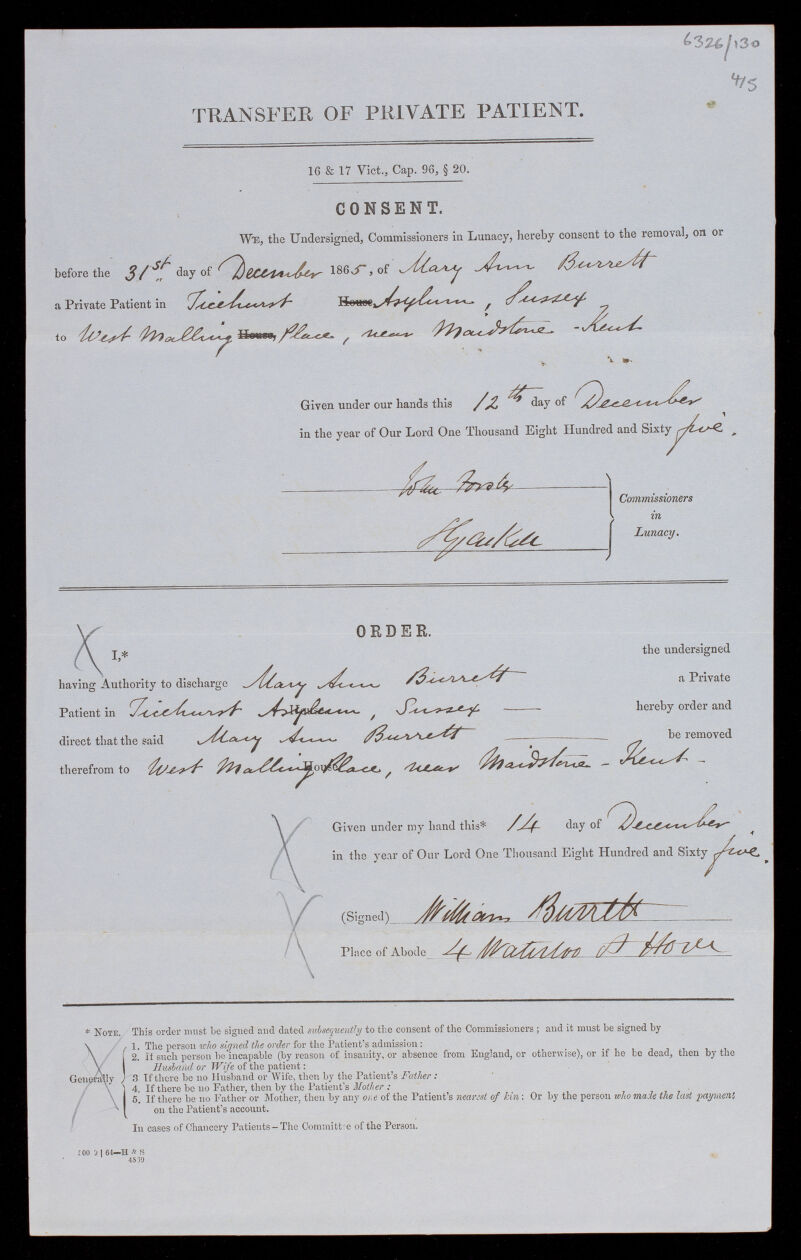 6326/130
4/5
TRANSFER OF PRIVATE PATIENT.
16 & 17 Vict., Cap. 96, § 20.
CONSENT.
WE, the Undersigned, Commissioners in Lunacy, hereby consent to the removal, on or
before the 31st day of December 1865, of Mary Ann Burrett
a Private Patient in Ticehurst House Asylum, Sussex
to West Malling House, Place, near Maidstone - Kent
Given under our hands this 12th day of December
in the year of Our Lord One Thousand Eight Hundred and Sixty five.
John Forster
S Gaskell
Commissioners
in
Lunacy.
ORDER.
I,* the undersigned
having Authority to discharge Mary Ann Burrett a Private
Patient in Ticehurst House Asylum, Sussex — hereby order and
direct that the said Mary Ann Burrett — be removed
therefrom to West Malling House Place, near Maidstone - Kent -
Given under my hand this* 14 day of December
in the year of Our Lord One Thousand Eight Hundred and Sixty five.
(Signed) William Burrett
Place of Abode 4 Waterloo St Hove
* NOTE. This order must be signed and dated subsequently to the consent of the Commissioners ; and it must be signed by
1. The person who signed the order for the Patient's admission :
2. If such person be incapable (by reason of insanity, or absence from England, or otherwise), or if he be dead, then by the
Husband or Wife of the patient :
Generally
3 If there be no Husband or Wife, then by the Patient's Father :
4. If there be no Father, then by the Patient's Mother :
5. If there be no Father or Mother, then by any one of the Patient's nearest of kin : Or by the person who made the last payment
on the Patient's account.
In cases of Chancery Patients - The Committee of the Person.
64—H & S